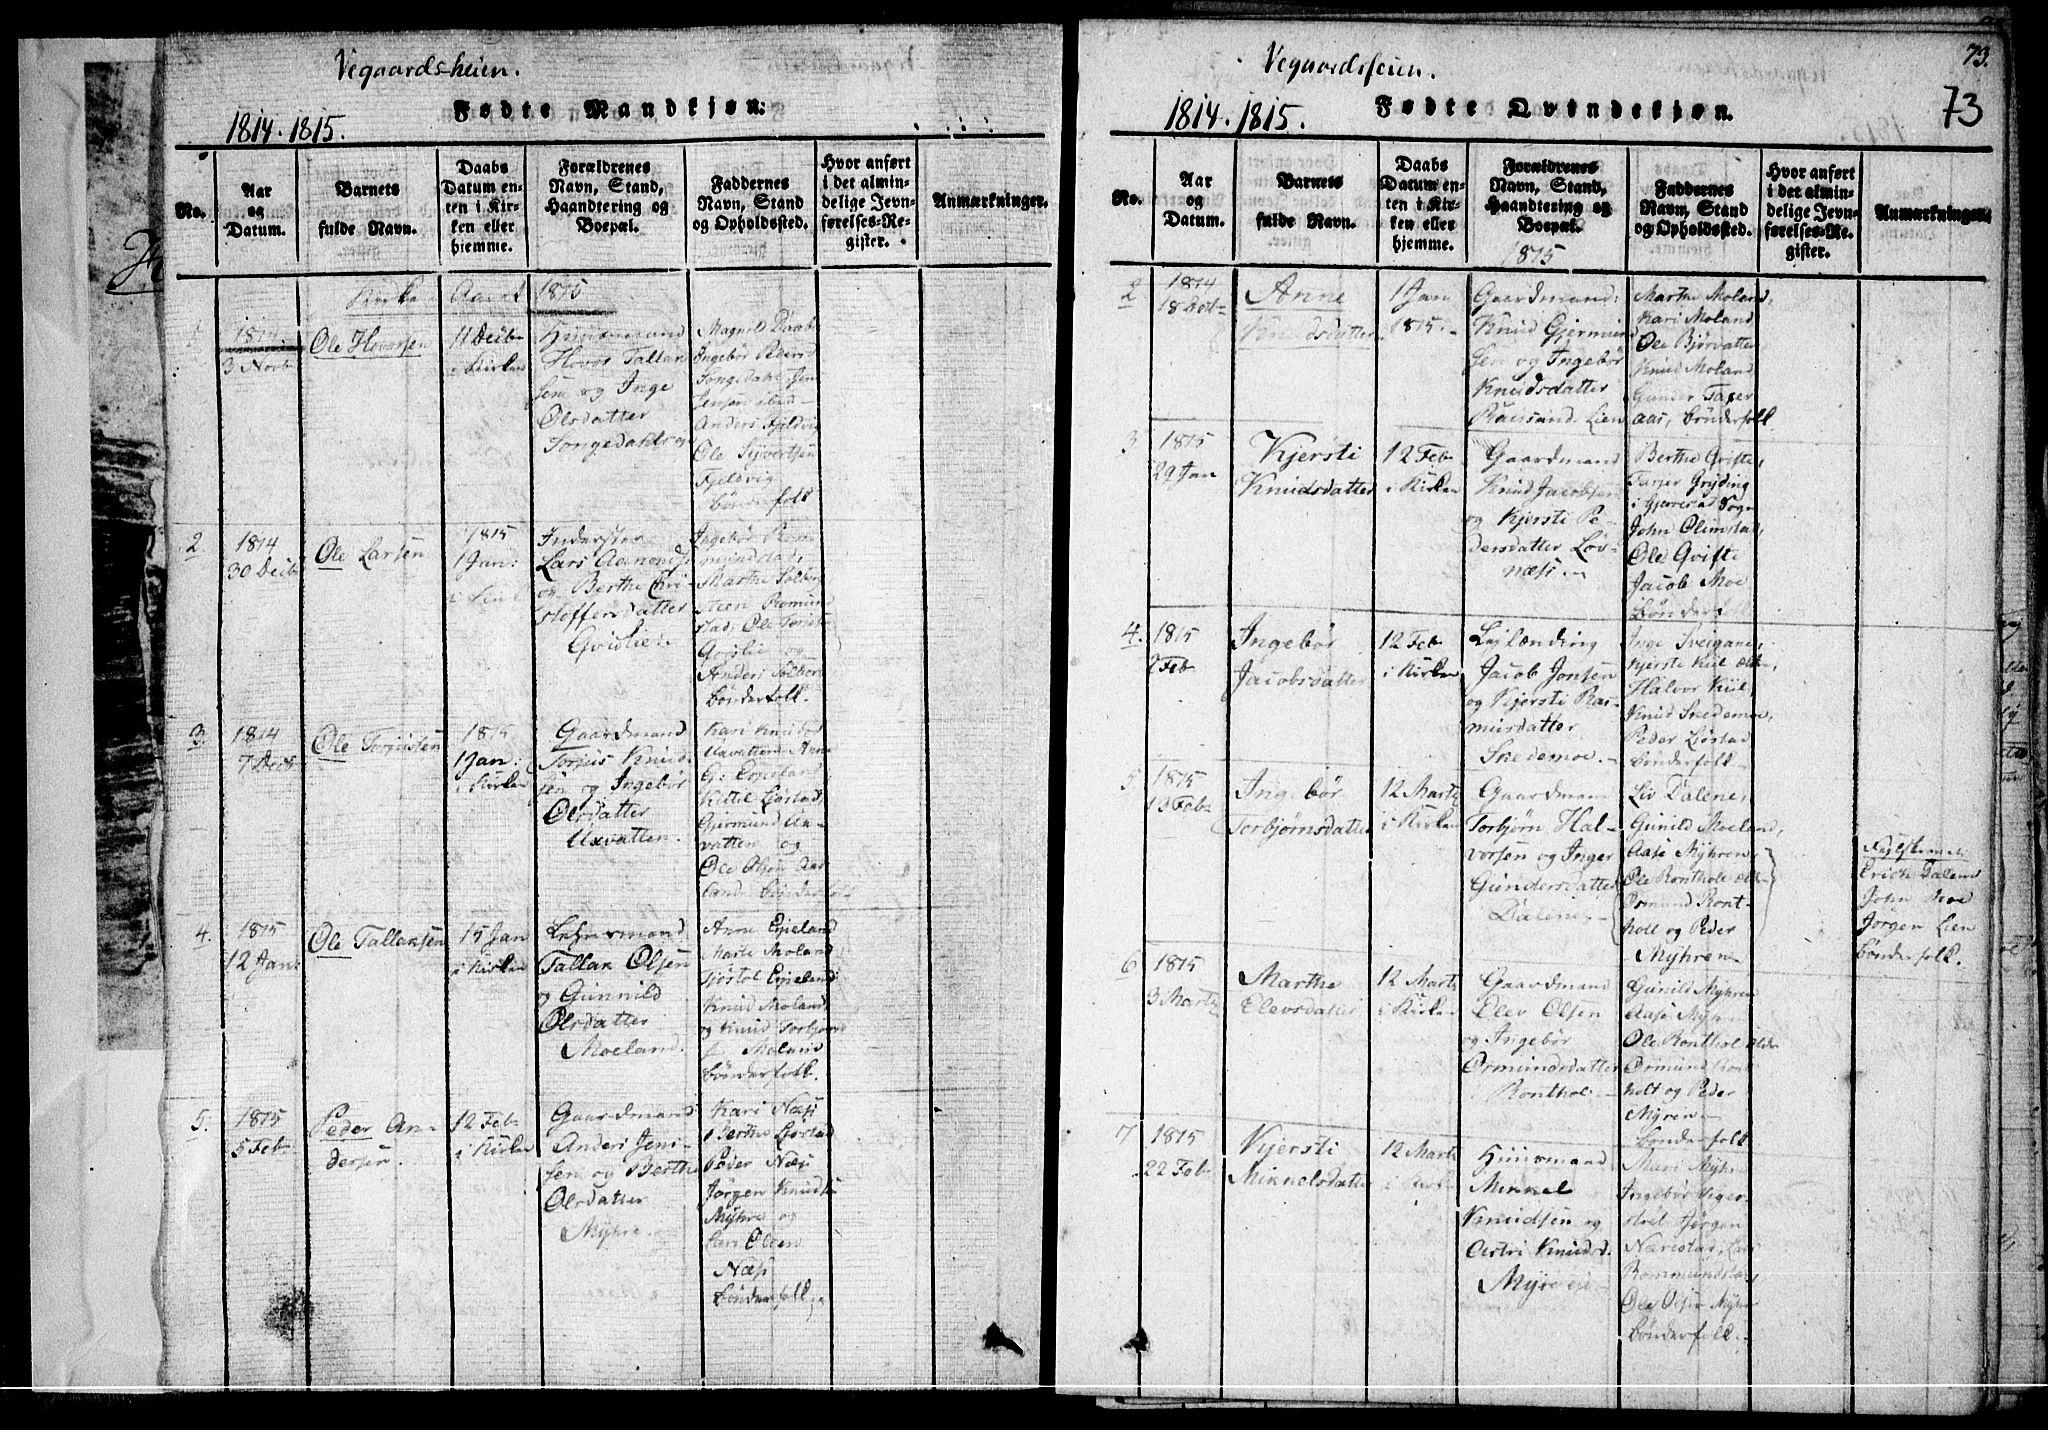 Vegaardsheien.
Fødte Mandkjøn:
1814. 1815.
No.
Aar og Datum.
Barnets fulde Navn.
Daabs Datum enten i Kirken eller hjemme.
Forældrenes Navn, Stand, Haandtering og Boepæl.
Faddernes Navn, Stand og Opholdssted.
Hvor anført i det almindelige Jevnførelses-Register.
Anmærkninger.
Kirke Aaret 1815
1
1814
3 Novb
Ole Hovorsen
11 Decb
i Kirken
Huusmand
Hovor Tallak
sen og Inge
Olsdatter
Songedahls
Magnild Daab
Ingebør Peders
Songedahl, Jen
Jensen ibid
Anders Fjeldvig
Ole Syvertsen
Fjeldvig
bønderfolk
2
1814
30 Decb
Ole Larsen
1815
1 Jan:
i Kirk
Inderster
Lars Aamonds
og Berthe Chri-
stoffersdatter
Gvislien
Ingebør Rom
mundstad,
Marthe Solber
Steen Romund
stad, Ole
Gvislie og
Anders Solber
bønderfolk.
3.
1814
7 Decb
Ole Torjusen
1815
1 Jan:
i Kirken
Gaardmand
Torjus Knud-
sen og Ingebør
Olsdatter
Uxvatten.
Kari Knudsd
Uxvatten Anne
G: Espeland,
Kittel Liøstad,
Gjermund Ux-
vatten og
Ole Olsen Aas
land. bønderfolk
4.
1815
12 Jan:
Ole Tallaksen
15 Jan
i Kirken
Lehnsmand
Tallak Olsen
og Gunnild
Olsdatter
Moeland.
Anne Espeland
Marte Moland,
Tjøstol Espeland
Knud Moland,
og Knud Torbjørns
s Moland
bønderfolk.
5.
1815
5 Feb
Peder An-
dersen.
12 Feb
i Kirken
Gaardmand
Anders Jens-
sen og Berthe
Olsdatter
Myhre.
Kari Næss
Berthe Liøstad
Peder Næss
Jørgen Knuds
Myhre og
Lars Olsen
Næss
bønderfolk.
Vegaardsheien.
73.
73
Fødte Qvindekjøn.
1814. 1815.
No.
Aar og Datum.
Barnets fulde Navn.
Daabs Datum enten i Kirken eller hjemme.
Forældrenes Navn, Stand, Haandtering og Boepæl.
Faddernes Navn, Stand og Opholdssted.
Hvor anført i det almindelige Jevnførelses-Register.
Anmærkninger.
1815
2
1814
18 Octb
Anne
Knudsdatter
1 Jan
1815.
Gaardmand:
Knud Gjermund
sen og Ingebør
Knudsdatter
Raussand. Lien
Marthe Moland,
Kari Moland
Ole Bjørvatten
Knud Moland
Gunder Tax er
aas, bønderfolk
3
1815
29 Jan
Kjersti
Knudsdatter
12 Feb
i Kirken
Gaardmand
Knud Jacobsen
og Kjersti Pe-
dersdatter Løv-
næss.
Berthe Qvifte,
Tarjer Gryting
i Gjerrestad Sogn
John Olimstad,
Ole Qvifte
Jacob Moe
bønderfolk
4.
1815
2 Feb
Ingebør
Jacobsdatter
12 Feb
i Kirken
Leylænding
Jacob Jonsen
og Kjersti Ras-
musdatter
Skedemoe.
Inge Sveigane,
Kjersti Kiil
Halvor Kiil,
Knud Skedemoe,
Peder Liøstad
bønderfolk
5
1815
13 Feb
Ingebør
Torbjørnsdatter
12 Marts
i Kirken
Gaardmand
Torbjørn Hal-
vorsen og Inger
Gundersdatter
Dalene.
Liv Dalene,
Gunild Moeland,
Aase Myhren,
Ole Ronthole
Ormund Ront-
holt og Peder
Myhren
Erich Dalene
John Moe
Jørgen Lien
bønderfolk.
6
1815
3 Marts
Marthe
Elevsdatter
12 Marts
i Kirken
Gaardmand
Elev Olsen
og Ingebør
Ormundsdatter
Ronthol.
Gunild Myhren
Aase Myhren
Ole Ronthol
Ormund Ront
holt og Peder
Myren
bønderfolk
7
1815
22 Feb
Kjersti
Mikkelsdatter
12 Marts
i Kirk
Huusmand
Mikkel
Knudsen og
Astri Knudsd.
Myre eje
Mari Myhre
Ingebør
Jørgen
Nærestad, Lars
Rommundstad,
Ole Olsen Myhre
bønderfolk.